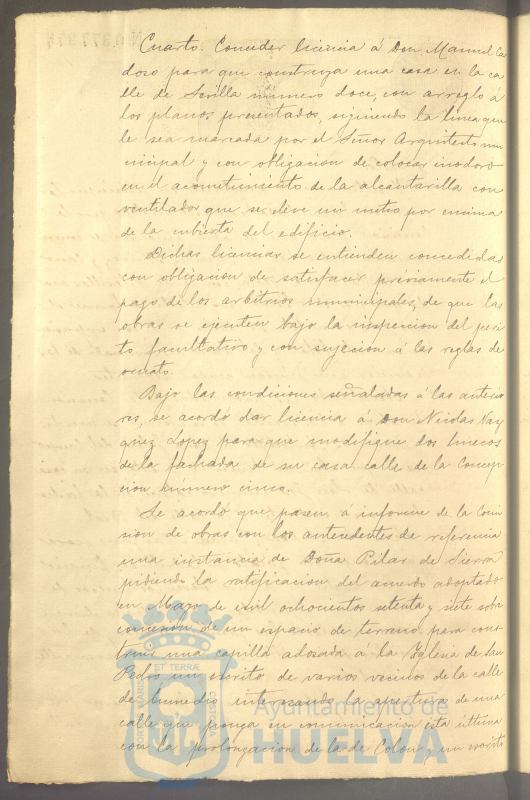 Cuarto. Conceder licencia á Don Manuel Car
doso para que construya una casa en la ca
lle de Sevilla número doce, con arreglo á
los planos presentados, siguiendo la linea que
le sea marcada por el Señor Arquitecto mu
nicipal y con obligacion de colocar inodoro
en el acometimiento de la alcantarilla con
ventilador que se eleve un metro por encima
de la cubierta del edificio.
Dichas licencias se entienden concedidas
con obligacion de satisfacer préviamente el
pago de los arbitrios municipales, de que las
obras se ejecuten bajo la inspeccion del peri
to facultativo y con sujecion á las reglas de
ornato.
Bajo las condiciones señaladas á las anterio
res, se acordó dar licencia á Don Nicolas Vaz
quez Lopez para que modifique dos huecos
de la fachada de su casa calle de la Concep
cion número cinco.
Se acordó que pasen á informe de la Comi
sion de obras con los antecedentes de referencia
una instancia de Doña Pilar de Sierra
pidiendo la ratificacion del acuerdo adoptado
en Mayo de mil ochocientos setenta y siete sobre
concesion de un espacio de terreno para cons
truir una capilla adosada á la Iglesia de San
Pedro, un escrito de varios vecinos de la calle
de interesando la apertura de una
calle que ponga en comunicacion esta última
con la prolongacion de la de Colon y un escrito
Ayuntamiento de
HUELVA